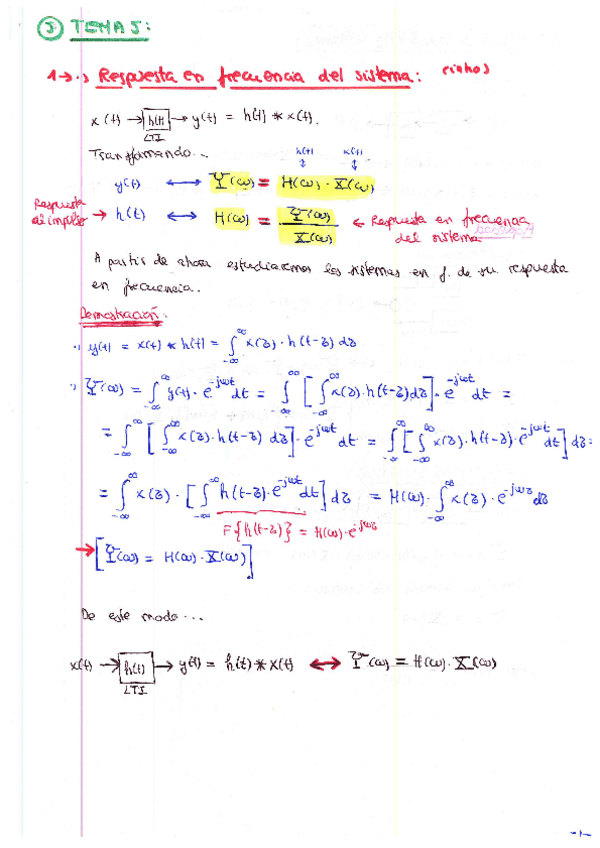 5) TEMA 5:
1→ ·) Respuesta en frecuencia del sistema:
x(t) → h(t) → y(t) = h(t) * x(t).
LTI
Transformando...
h(t) x(t)
↕ ↕
y(t) ↔ Y(ω) = H(ω) · X(ω)
Respuesta al impulso → h(t) ↔ H(ω) = Y(ω) / X(ω) ← Respuesta en frecuencia del sistema
A partir de ahora estudiaremos los sistemas en f. de su respuesta
en frecuencia.
Demostración.
·) y(t) = x(t) * h(t) = ∫_{-∞}^{∞} x(z) · h(t-z) dz
·) Y(ω) = ∫_{-∞}^{∞} y(t) · e^{-jωt} dt = ∫_{-∞}^{∞} [∫_{-∞}^{∞} x(z) · h(t-z) dz] · e^{-jωt} dt =
= ∫_{-∞}^{∞} [∫_{-∞}^{∞} x(z) · h(t-z) dz] · e^{-jωt} dt = ∫_{-∞}^{∞} [∫_{-∞}^{∞} x(z) · h(t-z) · e^{-jωt} dt] dz =
= ∫_{-∞}^{∞} x(z) · [∫_{-∞}^{∞} h(t-z) · e^{-jωt} dt] dz = H(ω) · ∫_{-∞}^{∞} x(z) · e^{-jωz} dz
F{h(t-z)} = H(ω) · e^{-jωz}
→ [Y(ω) = H(ω) · X(ω)]
De este modo...
x(t) → h(t) → y(t) = h(t) * x(t) ↔ Y(ω) = H(ω) · X(ω)
LTI
-1-